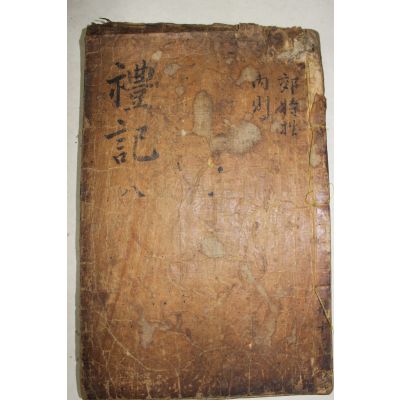 郊特牲
內則
禮記 八